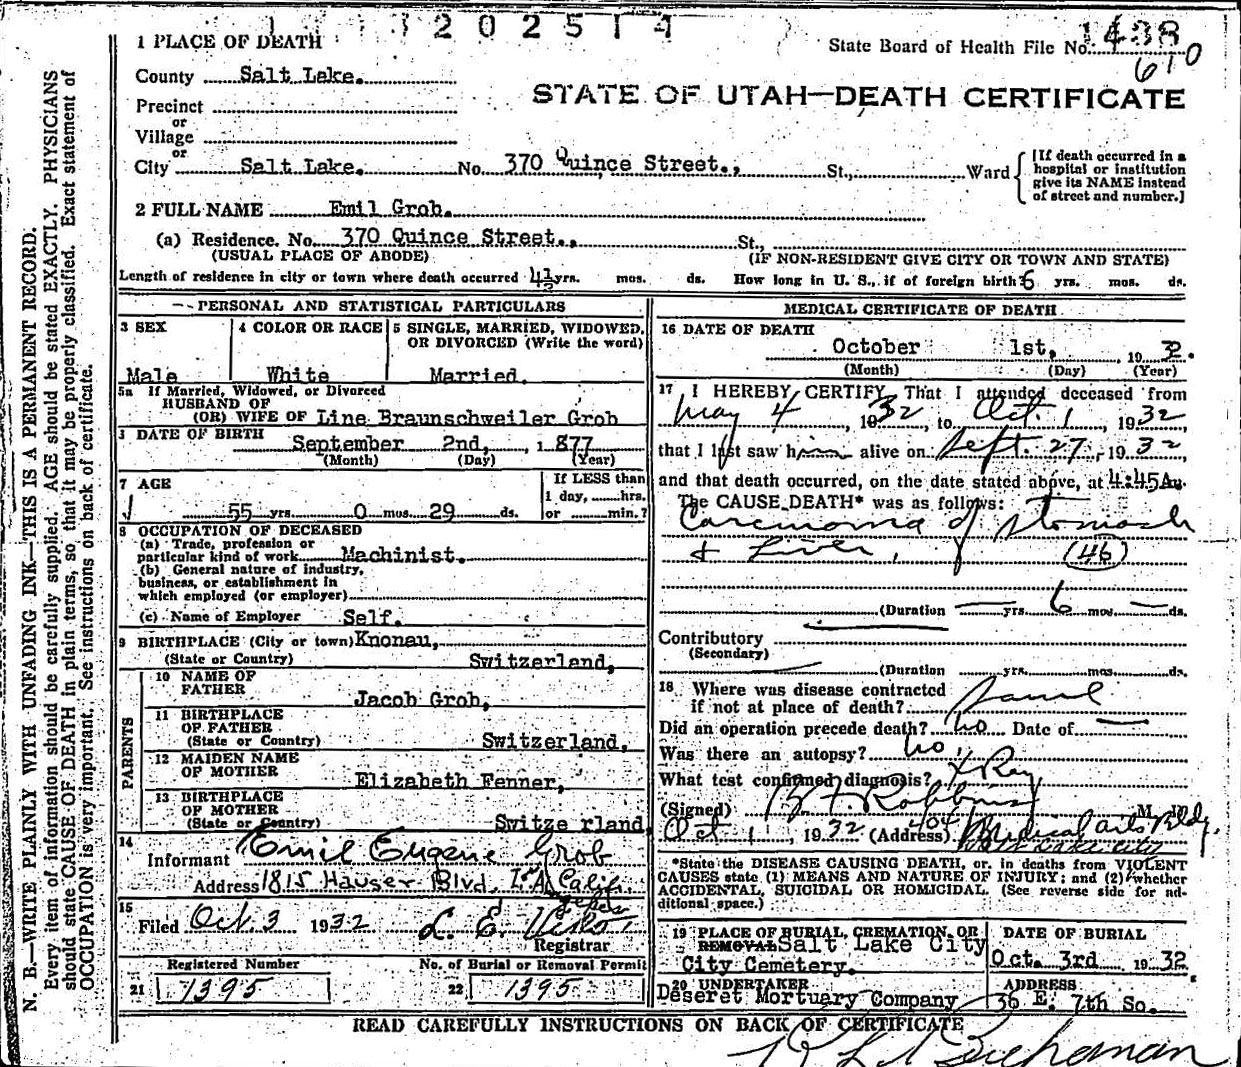 202514
1 PLACE OF DEATH
State Board of Health File No. 1438
610
County Salt Lake.
STATE OF UTAH—DEATH CERTIFICATE
Precinct
or
Village
or
City Salt Lake. No. 370 Quince Street., St., Ward
[If death occurred in a
hospital or institution
give its NAME instead
of street and number.]
2 FULL NAME Emil Grob.
(a) Residence. No. 370 Quince Street., St.,
(USUAL PLACE OF ABODE) (IF NON-RESIDENT GIVE CITY OR TOWN AND STATE)
Length of residence in city or town where death occurred yrs. mos. ds. How long in U. S., if of foreign birth? yrs. mos. ds.
PERSONAL AND STATISTICAL PARTICULARS
3 SEX
Male
4 COLOR OR RACE
White
5 SINGLE, MARRIED, WIDOWED,
OR DIVORCED (Write the word)
Married.
5a If Married, Widowed, or Divorced
HUSBAND OF
(OR) WIFE OF Line Braunschweiler Grob
DATE OF BIRTH
September 2nd, 1877
(Month) (Day) (Year)
7 AGE
55 yrs. 0 mos. 29 ds.
If LESS than
1 day, hrs.
or min.?
8 OCCUPATION OF DECEASED
(a) Trade, profession or
particular kind of work Machinist.
(b) General nature of industry,
business, or establishment in
which employed (or employer)
(c) Name of Employer Self.
9 BIRTHPLACE (City or town) Knonau,
(State or Country) Switzerland,
PARENTS
10 NAME OF
FATHER Jacob Grob,
11 BIRTHPLACE
OF FATHER
(State or Country) Switzerland,
12 MAIDEN NAME
OF MOTHER Elizabeth Fenner,
13 BIRTHPLACE
OF MOTHER
(State or Country) Switze rland
14
Informant Emil Eugene Grob
Address 1815 Hauser Blvd. Los Angeles Calif.
15
Filed Oct. 3 1932
Registrar
Registered Number
21 1395
No. of Burial or Removal Permit
22 1395
MEDICAL CERTIFICATE OF DEATH
16 DATE OF DEATH
October 1st, 1932.
(Month) (Day) (Year)
17 I HEREBY CERTIFY, That I attended deceased from
May 4, 1932, to Oct. 1, 1932
that I last saw him alive on Sept. 27, 1932
and that death occurred, on the date stated above, at 4:45A m.
The CAUSE DEATH* was as follows:
Carcinoma of Stomach
& Liver, (46)
(Duration — yrs. 6 mos. — ds.
Contributory
(Secondary)
(Duration yrs. mos. ds.
18 Where was disease contracted
if not at place of death?
Did an operation precede death? no Date of —
Was there an autopsy? no,
What test confirmed diagnosis? X Ray
(Signed) Robbins M. D.
Oct 1, 1932 (Address) 404 Medical Arts Bldg.
Salt Lake City
*State the DISEASE CAUSING DEATH, or, in deaths from VIOLENT
CAUSES state (1) MEANS AND NATURE OF INJURY; and (2) whether
ACCIDENTAL, SUICIDAL OR HOMICIDAL. (See reverse side for ad-
ditional space.)
19 PLACE OF BURIAL, CREMATION, OR
REMOVAL Salt Lake City
City Cemetery.
DATE OF BURIAL
Oct. 3rd 1932
20 UNDERTAKER
Deseret Mortuary Company
ADDRESS
36 E. 7th So.
READ CAREFULLY INSTRUCTIONS ON BACK OF CERTIFICATE
Buchanan
N. B.—WRITE PLAINLY WITH UNFADING INK—THIS IS A PERMANENT RECORD.
Every item of information should be carefully supplied. AGE should be stated EXACTLY. PHYSICIANS
should state CAUSE OF DEATH in plain terms, so that it may be properly classified. Exact statement of
OCCUPATION is very important. See instructions on back of certificate.